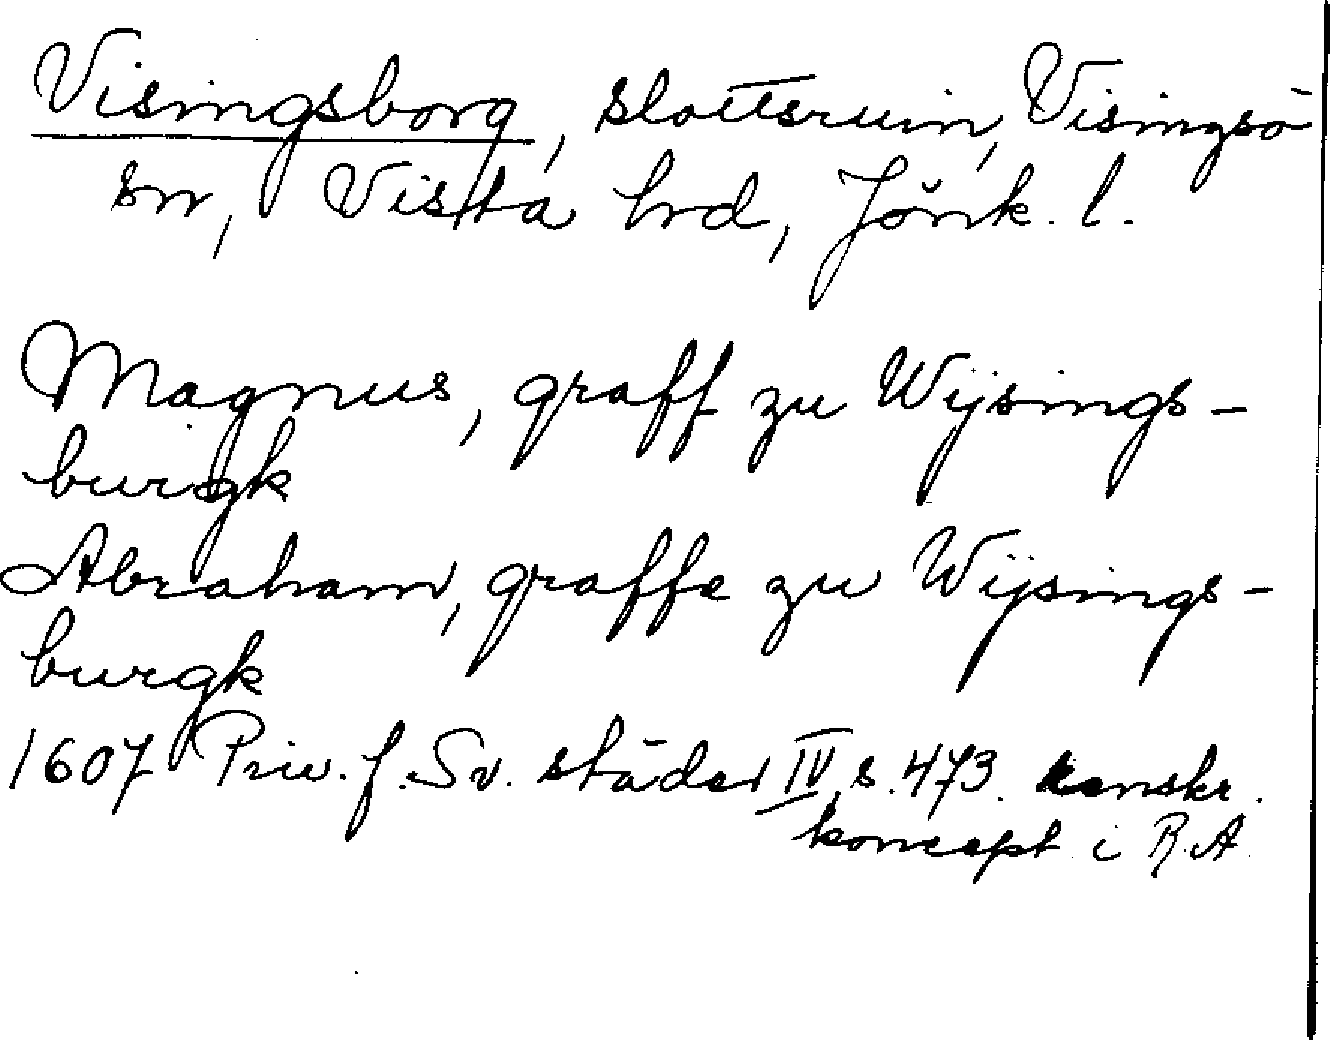 Visingsborg, slottsruin, Visingsö
sn, Vista hrd, Jönk. l.
Magnus, graff zu Wijsings-
burgk
Abraham, graffe zu Wijsings-
burgk
1607 Priv. f. Sv. städer IV, s. 473. renskr.
koncept i R.A.